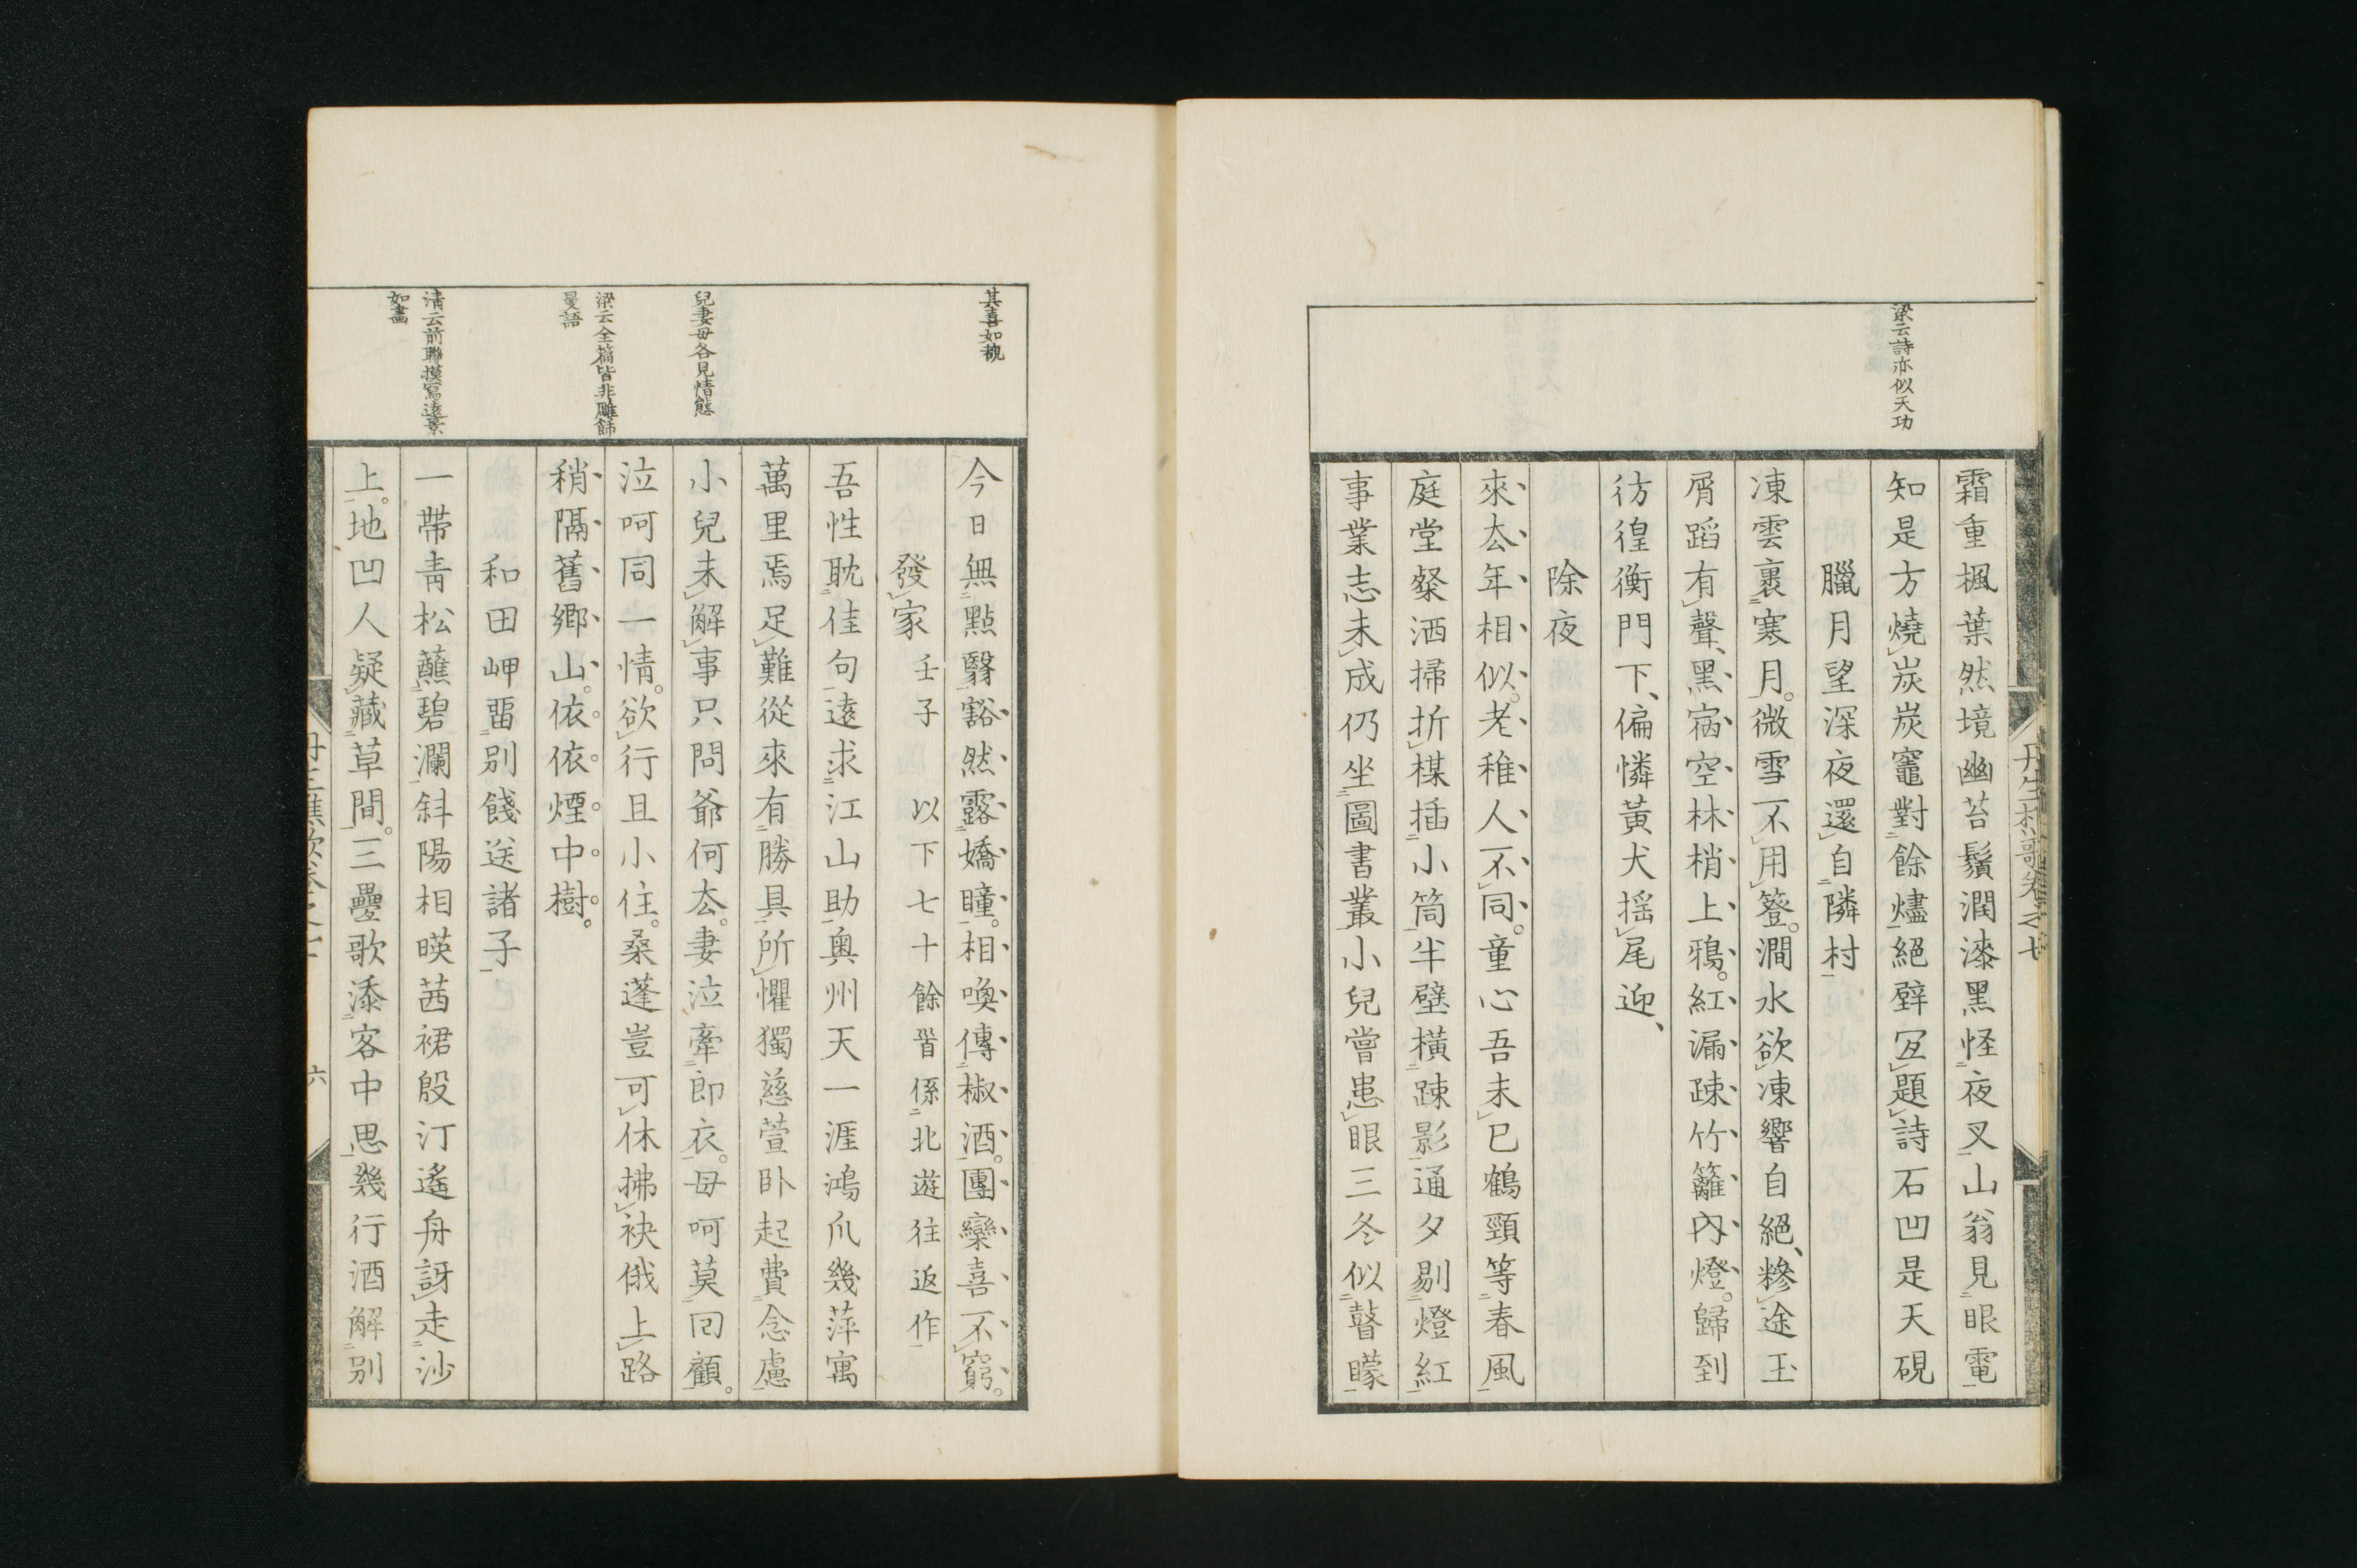 梁云詩亦似天功
霜重楓葉然境幽苔鬚潤漆黑怪夜叉山翁見眼電
知是方燒炭炭竈對餘燼絕壁冝題詩石凹是天硯
臘月望深夜還自隣村
凍雲裹寒月微雪不用簦澗水欲凍響自絕糝途玉
屑蹈有聲黑㾰空林梢上鴉紅漏疎竹籬內燈歸到
彷徨衡門下偏憐黃犬摇尾迎
除夜
來厺年相似老稚人不同童心吾未已鶴頸等春風
庭堂粲洒掃折楳插小筒半壁橫疎影通夕剔燈紅
事業志未成仍坐圖書叢小兒嘗患眼三冬似瞽矇
其喜如覩
兒妻母各見情態
梁云全篇皆非雕飾
曼語
清云前聯摸寫遠景
如畵
今日無點翳豁然露嬌瞳相喚傳椒酒團欒喜不窮
發家 壬子 以下七十餘首係北遊往返作
吾性耽佳句遠求江山助奧州天一涯鴻爪幾萍寓
萬里焉足難從來有勝具所懼獨慈萱卧起費念慮
小兒未解事只問爺何厺妻泣牽郎衣母呵莫回顧
泣呵同一情欲行且小住桑蓬豈可休拂袂俄上路
稍隔舊鄉山依依煙中樹
和田岬畱別餞送諸子
一帶青松蘸碧瀾斜陽相暎茜裙殷汀遙舟訝走沙
上地凹人疑藏草間三疊歌添客中思幾行酒解別
六